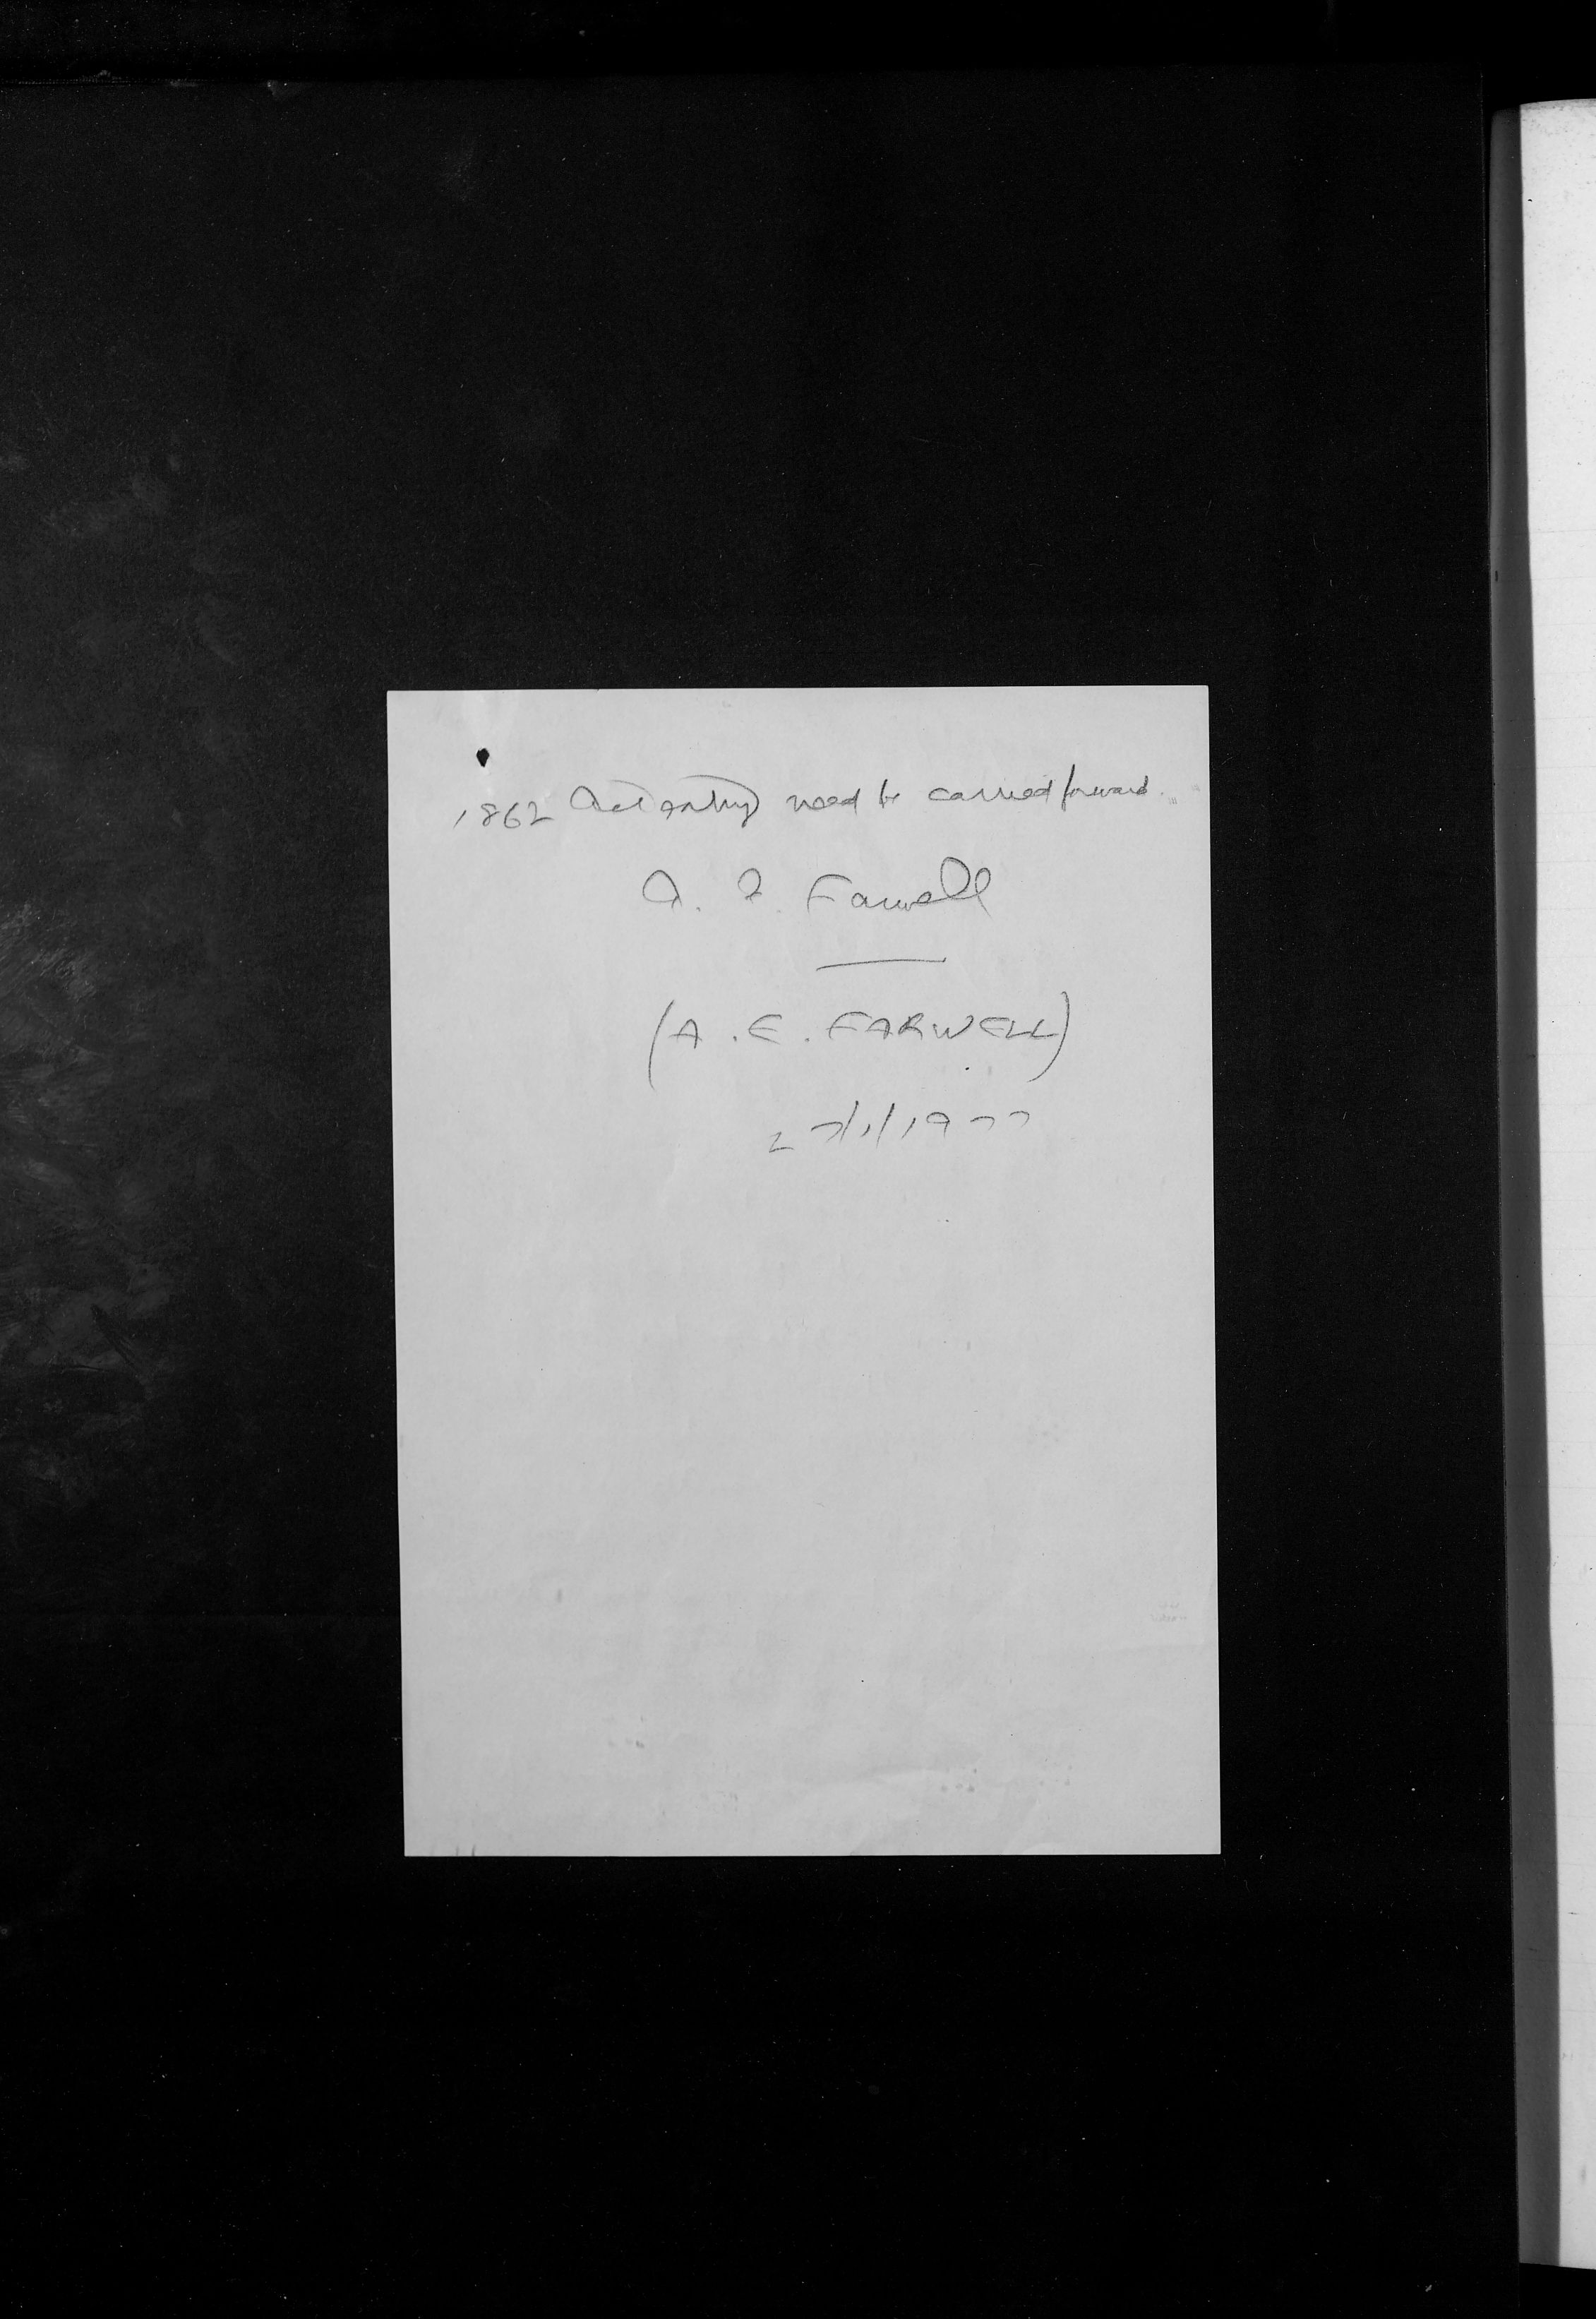 1862 Act entry need be carried forward.
A. E. Farwell
(A. E. FARWELL)
27/1/1977